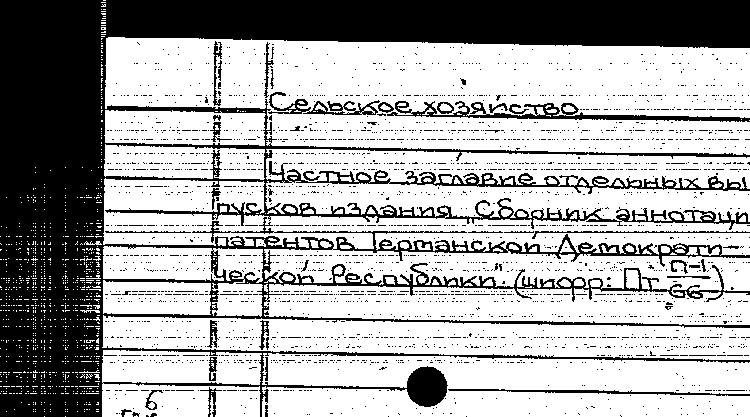 Сельское хозяйство.
Частное заглавие отдельных вы
пусков издания „Сборник аннотаци
патентов Германской Демократи-
ческой Республики". (шифр: Пт П-1/GG).
6